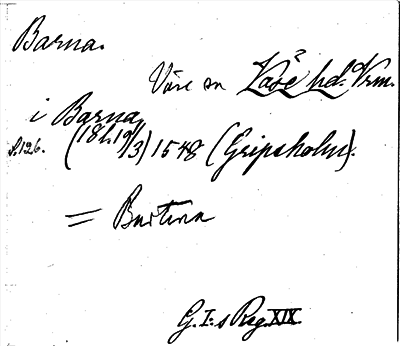 Barna.
Våre sn Väse hd. Vrm.
i Barna
s. 126. (18 h. 19/3) 1548 (Gripsholm).
= Bastuna
G. I:s Reg. XIX.